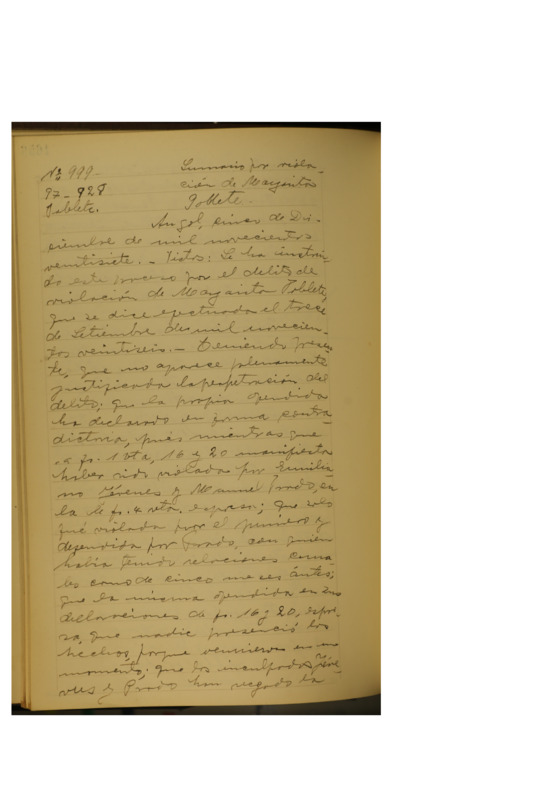 Nº 999- Sumario por viola-
97_928 ción de Margarita
Poblete. Poblete.
Angol, cinco de Di-
ciembre de mil novecientos
veintisiete.- Vistos: Se ha instrui-
do este proceso por el delito de
violación de Margarita Poblete,
que se dice efectuada el trece
de Setiembre de mil novecien-
tos veintiseis.- Teniendo presen-
te, que no aparece plenamente
justificada la perpetración del
delito; que la propia ofendida
ha declarado en forma contra-
dictoria, pues mientras que
a fs. 1 vta, 16 y 20 manifiesta
haber sido violada por Emilia-
no y Manuel Prado, en
la de fs. 4 vta. expresa; que solo
fué violada por el primero y
defendida por Prado, con quien
había tenido relaciones carna-
les como de cinco meses ántes;
que la misma ofendida en sus
declaraciones de fs. 16 y 20, espre-
sa, que nadie presenció los
hechos, porque vinieron en un
momento; que los inculpados
y Prado han negado la